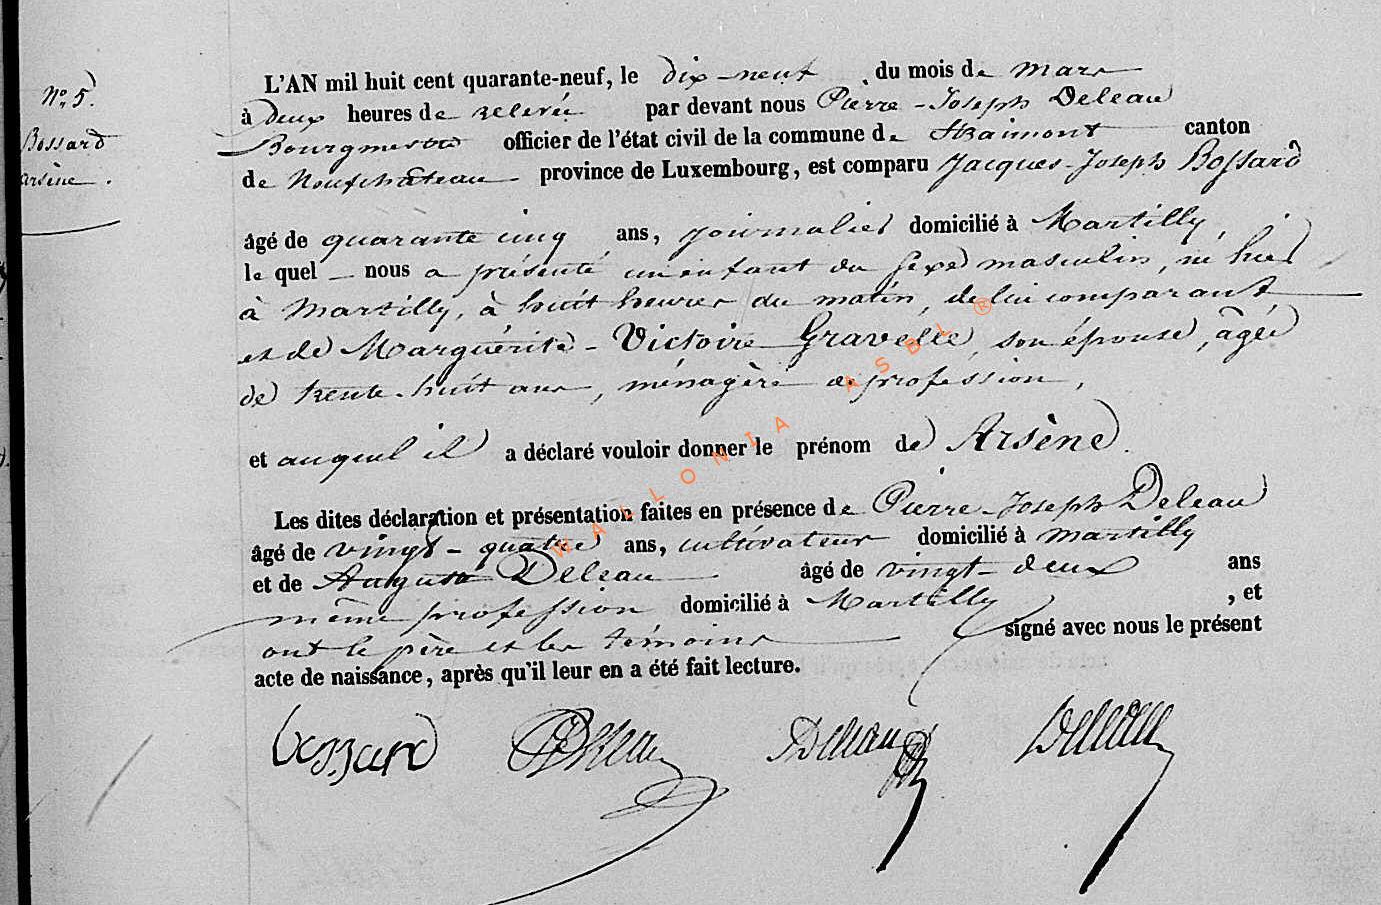 N° 5.
Bossard
arsène.
L'AN mil huit cent quarante-neuf, le dix-neuf du mois de mars
à deux heures de relevée par devant nous Pierre-Joseph Deleau
Bourgmestre officier de l'état civil de la commune de Straimont canton
de Neufchâteau province de Luxembourg, est comparu Jacques-Joseph Bossard
âgé de quarante cinq ans, journalier domicilié à Martilly,
le quel nous a présenté un enfant du sexe masculin, né hier
à Martilly, à huit heures du matin, de lui comparant
et de Marguérite-Victoire Gravelle, son épouse, âgée
de trente-huit ans, ménagère de profession,
et auquel il a déclaré vouloir donner le prénom de Arsène.
Les dites déclaration et présentation faites en présence de Pierre-Joseph Deleau
âgé de vingt-quatre ans, cultivateur domicilié à Martilly
et de Auguste Deleau âgé de vingt-deux ans
même profession domicilié à Martilly, et
ont le père et les témoins signé avec nous le présent
acte de naissance, après qu'il leur en a été fait lecture.
Bossard PJDeleau ADeleau Deleau
WALLONIA ASBL ®